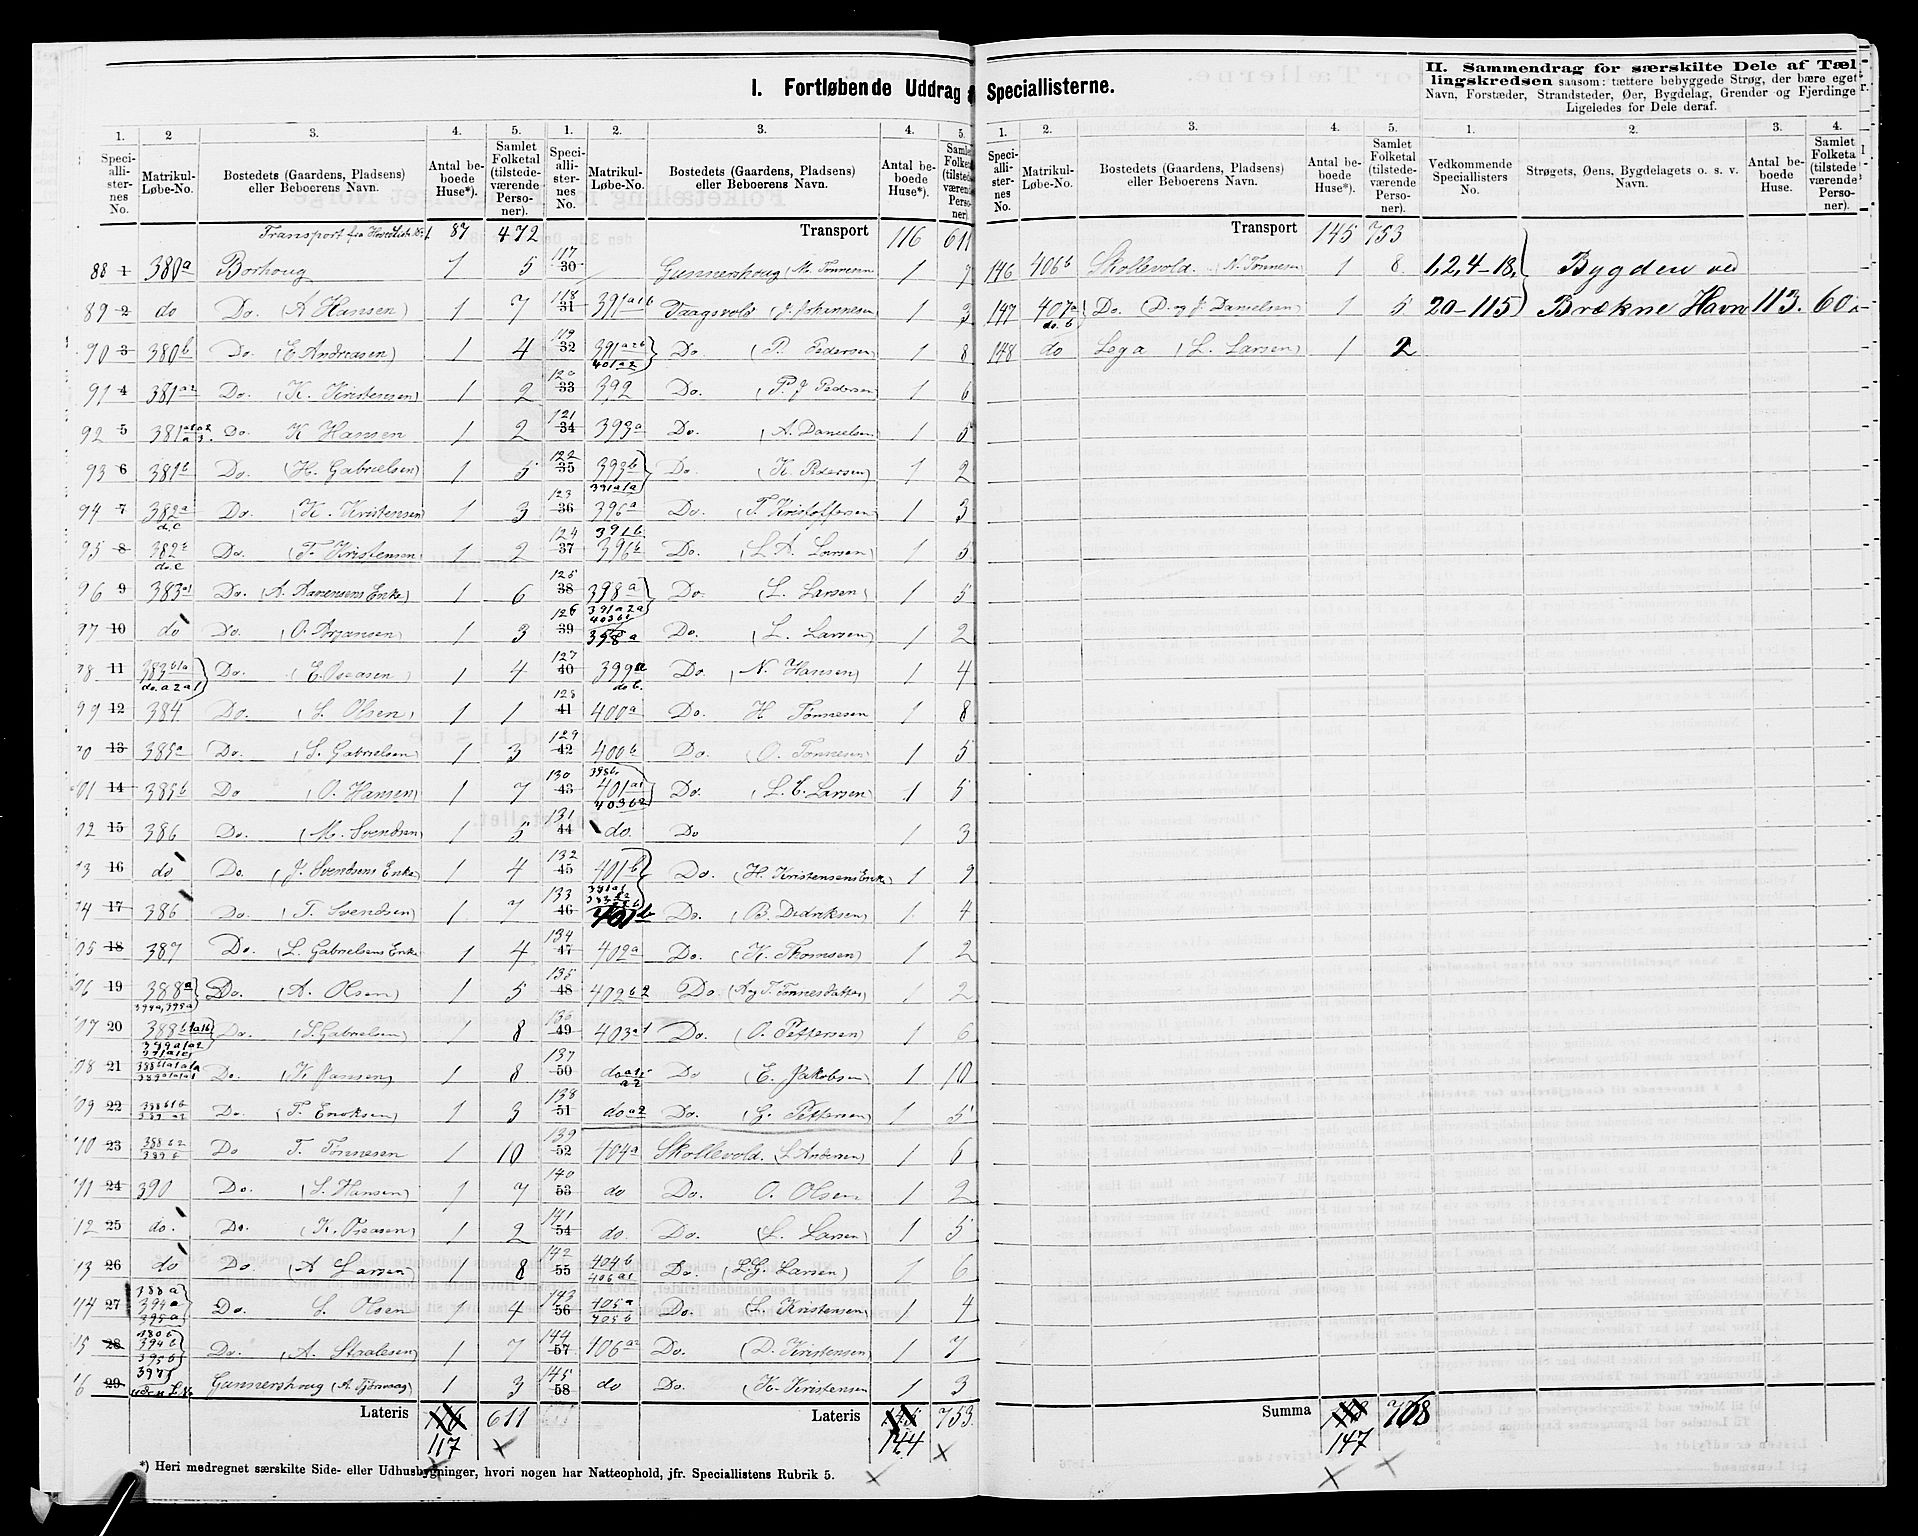 I. Fortløbende Uddrag Speciallisterne.
II. Sammendrag for særskilte Dele af Tæl-
lingskredsen saasom: tættere bebyggede Strøg, der bære eget
Navn, Forstæder, Strandsteder, Øer, Bygdelag, Grender og Fjerdinge
Ligeledes for Dele deraf.
1. 2 3. 4. 5. 1. 2. 3. 4. 5.
Speciallisternes No. Matrikul-Løbe-No. Bostedets (Gaardens, Pladsens) eller Beboerens Navn. Antal beboede Huse*). Samlet Folketal (tilstedeværende Personer).
Transport fra Hovedliste No. 1 87 472
88 1 380a Borhoug 1 5
89 2 do Do. (A Hansen) 1 7
90 3 380b Do (E Andreasen) 1 4
91 4 381a2 Do. (K. Kristensen) 1 2
92 5 381 Do. K Hansen 1 2
93 6 381b Do (H. Gabrielsen) 1 5
94 7 382a do. c Do. (K. Kristensen) 1 3
95 8 382 do. c Do. (T. Kristensen) 1 2
96 9 383a1 Do. (A. Aanensens Enke) 1 6
97 10 do Do. (O. Arjansen) 1 3
98 11 383b1a do. a2a1 Do. (E. Oseasen) 1 4
99 12 384 Do. (S. Olsen) 1 1
13 385a Do. (S. Gabrielsen) 1 3
01 14 385b Do (O. Hansen) 1 7
02 15 386 Do. (M. Svendsen) 1 5
03 16 do Do. (J. Svendsens Enke) 1 4
04 17 386 Do. (T. Svendsen) 1 7
05 18 387 Do. (L. Gabrielsens Enke 1 4
06 19 388a Do. (A. Olsen) 1 5
07 20 388 Do. (S. Gabrielsen) 1 8
08 21 Do. (K Jansen) 1 8
09 22 388b1b 389 a2 Do. (T. Enoksen) 1 3
10 23 388b2 389b Do T. Tønnesen 1 10
11 24 390 Do. (S. Hansen) 1 7
12 25 do. Do. (K. Oseasen) 1 2
13 26 do Do. (A Larsen) 1 8
14 27 388a 394a 395a Do. S. Olsen 1 4
15 28 394b 395b Do. (A. Staalesen 1 7
16 29 397 Gunnershoug (A. 1 3
Lateris 116 611
117
Transport 116 611
117 30 Gunnershoug (M. Tønnesen 1 7
118 31 391a1b Vaagsvold (J. Johannesen 1 3
119 32 391a2b 401a2 Do (P. Pedersen 1 8
120 33 392 Do. (P. J Pedersen 1 6
121 34 393a Do. (A. Danielsen 1 5
122 35 393b 391a1a Do (K. Pedersen) 1 2
123 36 396a Do. T. Kristoffersen 1 3
124 37 391b. 396b Do. (L A. Larsen) 1 5
125 38 398a 391a2a Do. (L. Larsen) 1 5
126 39 403b1 398a Do. (L. Larsen) 1 2
127 40 399a do b. Do. (N. Hansen) 1 4
128 41 400a Do. H Tønnesen 1 8
129 42 400b Do. (O. Tønnesen) 1 5
130 43 398b 401a1 403b2 Do. (L. C. Larsen) 1 5
131 44 do. Do 1 3
132 45 401b Do. (H. Kristensens Enke) 1 9
133 46 401b Do. (B. Dedriksen) 1 4
134 47 402a Do. (K. Thomsen) 1 2
135 48 402b2 Do (A og T. Tønnesdatter) 1 2
136 49 403a1 Do. (O. Pettersen) 1 6
137 50 do a1 a2 Do (E. Jakobsen) 1 10
138 51 do a2 Do. (G. Pettersen) 1 5
139 52 404a Skollevold. (L Andersen) 1 6
140 53 do Do. O. Olsen 1 2
141 54 do. Do. (L. Larsen) 1 5
142 55 404b 406a1 Do. (L.G. Larsen) 1 6
143 56 405a 405b Do. (L. Kristensen) 1 4
144 57 406a2 Do. (D. Kristensen) 1 7
145 58 do Do. (K. Kristensen 1 3
Lateris 145 753.
144
Transport 145 753
146 406b Skollevold. (N. Tønnesen 1 8
147 407a do. b Do. (D. og J. Danielsen) 1 5
148 do Lega (L. Larsen) 1 2
Summa 148 768
147
1. 2. 3. 4.
Vedkommende Speciallisters No. Strøgets, Øens, Bygdelagets o. s. v. Navn. Antal beboede Huse. Samlet Folketal (tilstedeværende Personer).
1, 2, 4–18, Bygden ved
20–115 Brækne Havn 113.
*) Heri medregnet særskilte Side- eller Udhusbygninger, hvori nogen har Natteophold, jfr. Speciallistens Rubrik 5.